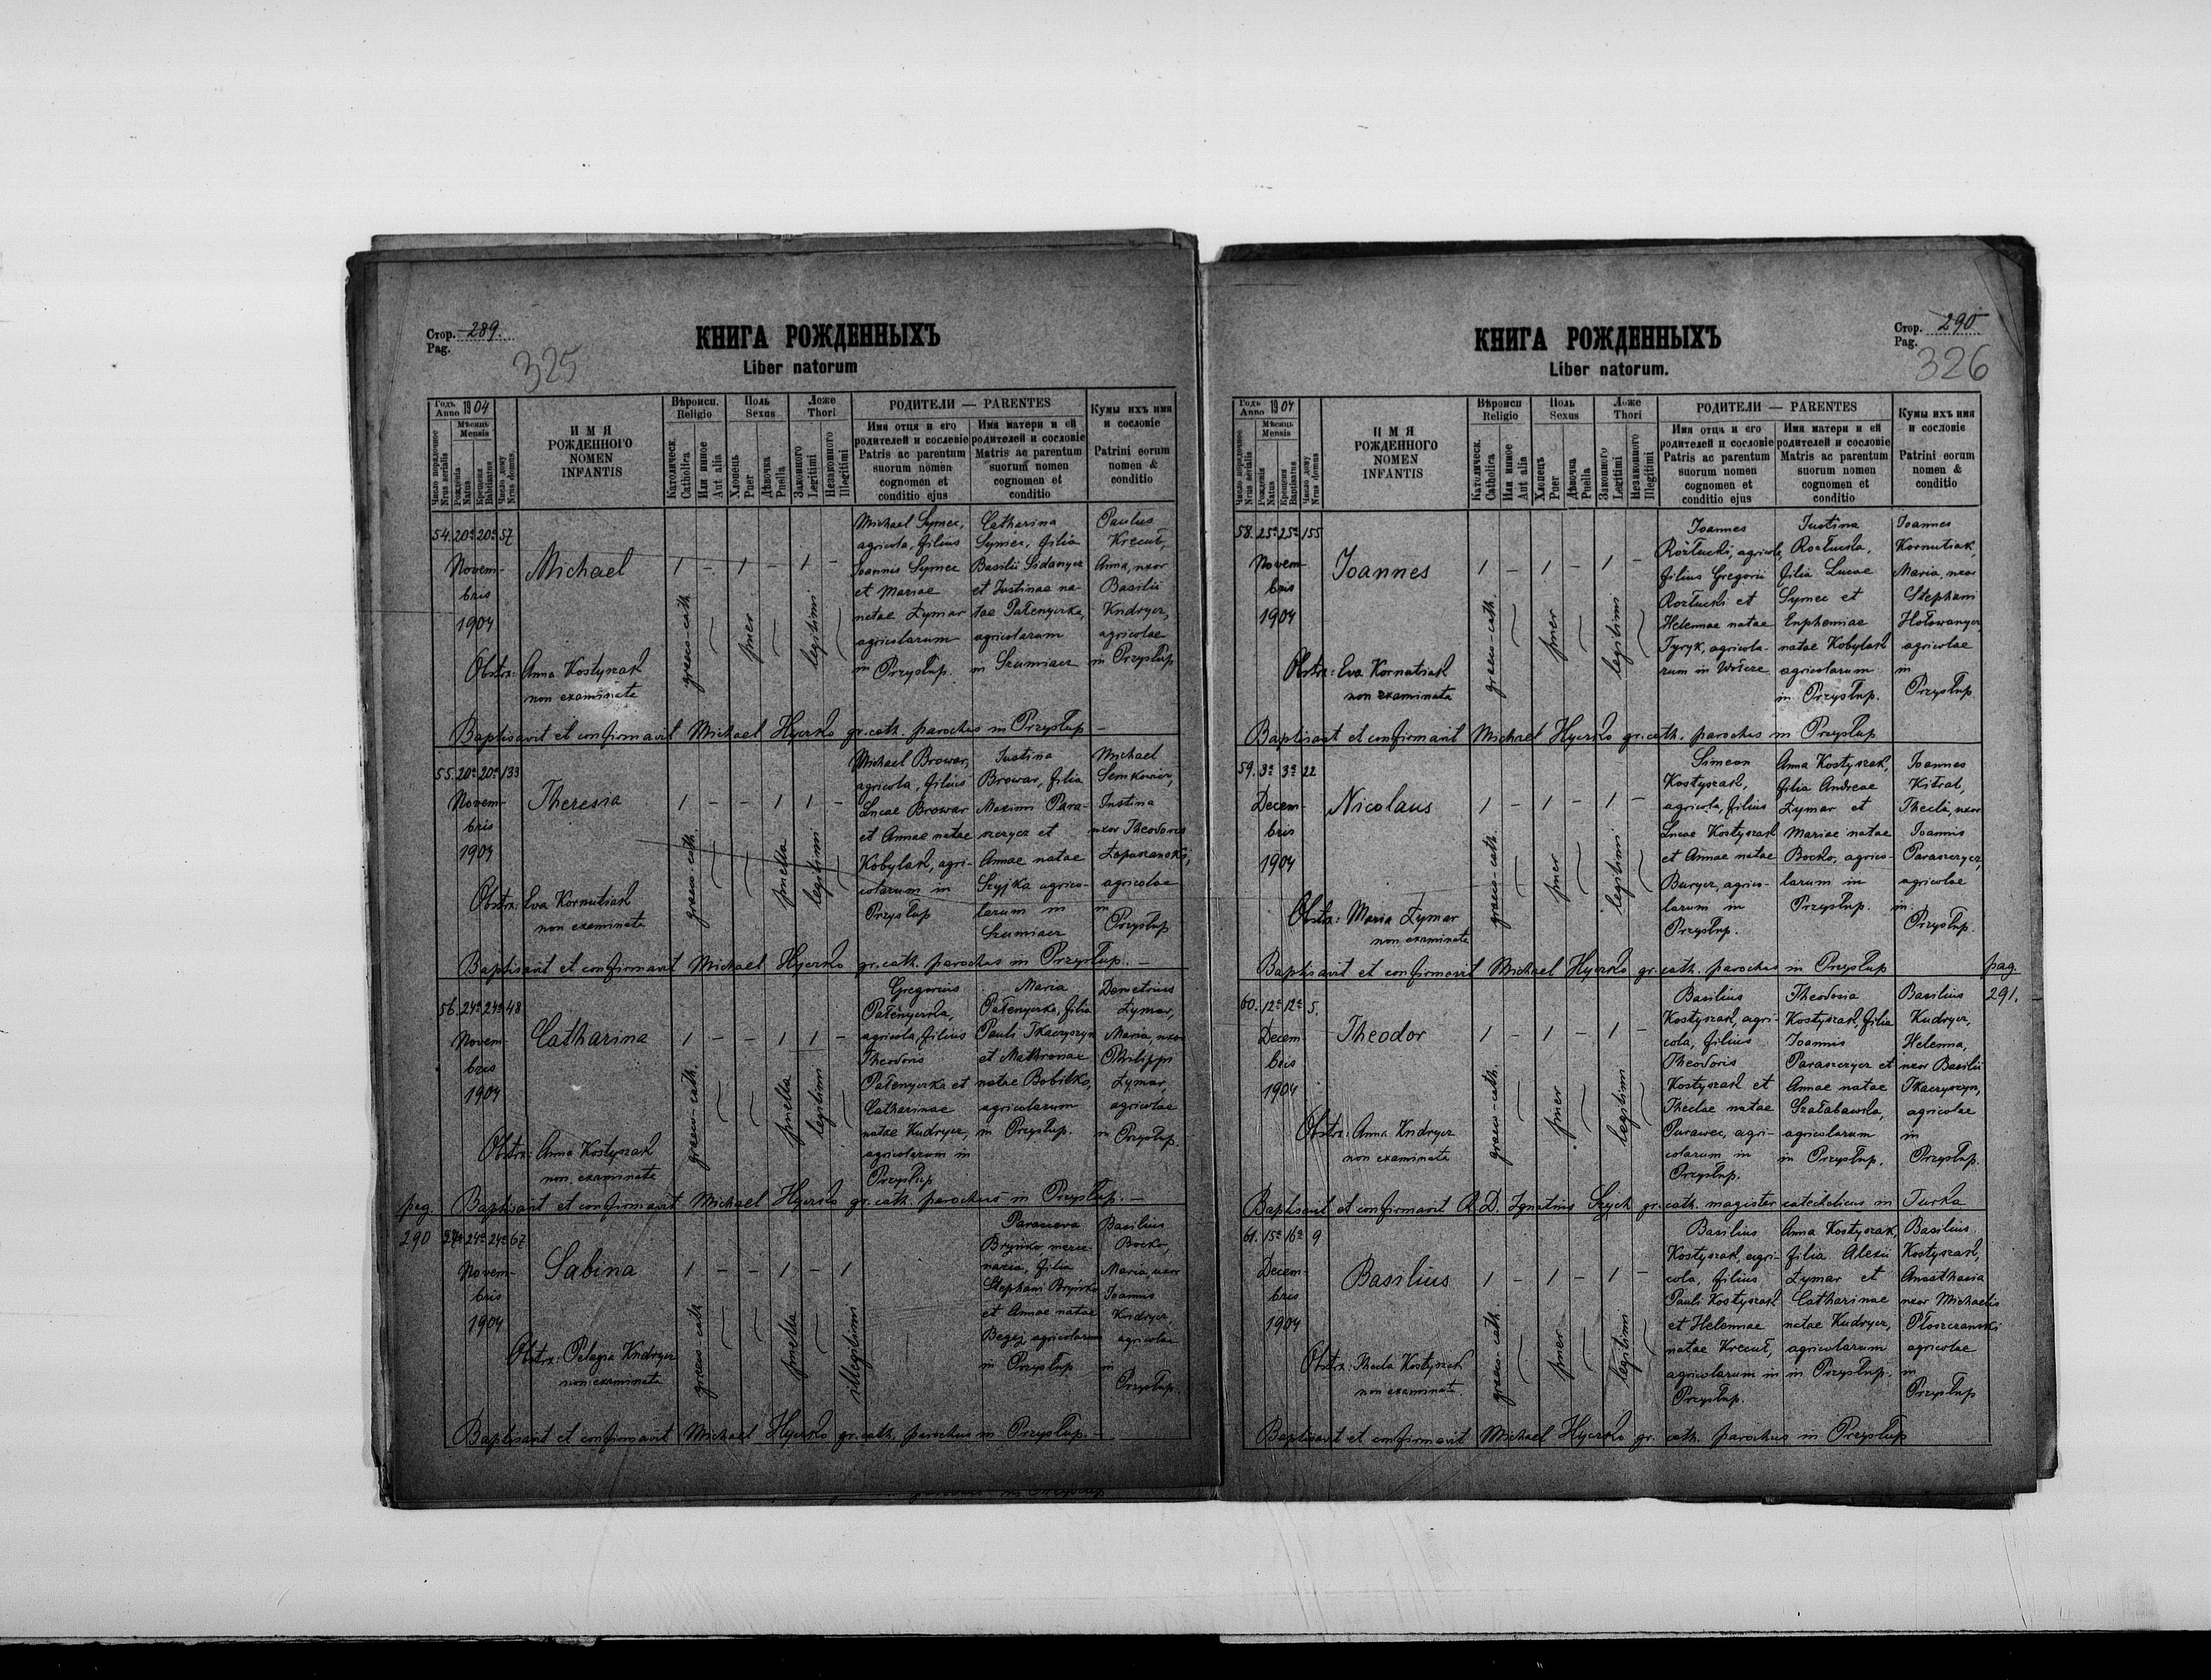 Стор. 289.
Pag.
325
КНИГА РОЖДЕННЫХЪ
Liber natorum
Годъ
Anno 1904
Мѣсяць
Mensis
Число порядковое
Nrus serialis
Рожденія
Natus
Крещенія
Babtisatus
Число дому
Nrus domus
ИМЯ
РОЖДЕННОГО
NOMEN
INFANTIS
Вѣроисп.
Religio
Католическ.
Catholica
Или инное
Aut alia
Полъ
Sexus
Хлопець
Puer
Дѣвочка
Puella
Ложе
Thori
Законного
Legitimi
Незаконного
Illegitimi
РОДИТЕЛИ — PARENTES
Имя отца и его
родителей и сословіе
Patris ac parentum
suorum nomen
cognomen et
conditio ejus
Имя матери и ей
родителей и сословіе
Matris ac parentum
suorum nomen
cognomen et
conditio
Кумы ихъ имя
и сословіе
Patrini eorum
nomen &
conditio
54. 20a 20a 57
Novem-
bris
1904
Michael
1 – 1 – 1 –
graeco-cath.
puer
legitimi
Michael Symec,
agricola, filius
Joannis Symec
et Mariae
natae Łymar
agricolarum
in Przysłup.
Catharina
Symec, filia
Basilii Sidanycz
et Justinae na-
tae Pałenyczka,
agricolarum
in Szumiacz
Paulus
Krecuł,
Anna, uxor
Basilii
Kudrycz,
agricolae
in Przysłup
Obstx: Anna Kostyszak
non examinata
Baptisavit et confirmavit Michael Hyczko gr. cath. parochus in Przysłup –
55. 20a 20a 133
Novem-
bris
1904
Theresia
1 – – 1 1 –
graeco-cath.
puella
legitimi
Michael Browar,
agricola, filius
Lucae Browar
et Annae natae
Kobylak, agri-
colarum in
Przysłup
Justina
Browar, filia
Maximi Para-
szczycz et
Annae natae
Szyjka agrico-
larum in
Szumiacz
Michael
Semkowicz,
Justina
uxor Theodoris
Łopuszanski,
agricolae
in
Przysłup
Obstx: Eva Kornutiak
non examinata
Baptisavit et confirmavit Michael Hyczko gr. cath. parochus in Przysłup. –
56. 24a 24a 48
Novem-
bris
1904
Catharina
1 – – 1 1 –
graeco-cath.
puella
legitimi
Gregorius
Pałenyczka,
agricola, filius
Theodoris
Pałenyczka et
Catharinae
natae Kudrycz,
agricolarum in
Przysłup
Maria
Pałenyczka, filia
Pauli Tkaczyszyn
et Mathronae
natae Bobitko,
agricolarum
in Przysłup.
Demetrius
Łymar,
Maria, uxor
Philippi
Łymar,
agricolae
in Przysłup.
Obstx: Anna Kostyszak
non examinata
pag. Baptisavit et confirmavit Michael Hyczko gr. cath. parochus in Przysłup. –
290
24a 24a 67
Novem-
bris
1904
Sabina
1 – – 1 – 1
graeco-cath.
puella
illegitimi
Parasceva
Brynko, merce-
naria, filia
Stephani Brynko
et Annae natae
Begej agricolarum
in Przysłup
Basilius
Bocko,
Maria, uxor
Joannis
Kudrycz,
agricolae
in
Przysłup.
Obstx: Pelagia Kudrycz
non examinata
Baptisavit et confirmavit Michael Hyczko gr. cath. parochus in Przysłup. –
Стор. 290
Pag.
326
КНИГА РОЖДЕННЫХЪ
Liber natorum.
Годъ
Anno 1904
Мѣсяць
Mensis
Число порядковое
Nrus serialis
Рожденія
Natus
Крещенія
Baptisatus
Число дому
Nrus domus
ИМЯ
РОЖДЕННОГО
NOMEN
INFANTIS
Вѣроисп
Religio
Католическ.
Catholica
Или инное
Aut alia
Полъ
Sexus
Хлопецъ
Puer
Дѣвочка
Puella
Ложе
Thori
Законного
Legitimi
Незаконного
Illegitimi
РОДИТЕЛИ — PARENTES
Имя отца и его
родителей и сословіе
Patris ac parentum
suorum nomen
cognomen et
conditio ejus
Имя матери и ей
родителей и сословіе
Matris ac parentum
suorum nomen
cognomen et
conditio
Кумы ихъ имя
и сословіе
Patrini eorum
nomen &
conditio
58. 25a 25a 155
Novem-
bris
1904
Joannes
1 – 1 – 1 –
graeco-cath.
puer
legitimi
Joannes
Rozłucki, agricola,
filius Gregorii
Rozłucki et
Helennae natae
Tyryk, agricola-
rum in Wołcze
Justina
Rozłucka,
filia Lucae
Symec et
Euphemiae
natae Kobylak
agricolarum
in Przysłup.
Joannes
Kornutiak,
Maria, uxor
Stephani
Hołowanycz,
agricolae
in
Przysłup
Obstx: Eva Kornutiak
non examinata
Baptisavit et confirmavit Michael Hyczko gr. cath. parochus in Przysłup
59. 3a 3a 22
Decem-
bris
1904
Nicolaus
1 – 1 – 1 –
graeco-cath.
puer
legitimi
Simeon
Kostyszak,
agricola, filius
Lucae Kostyszak
et Annae natae
Burycz, agrico-
larum in
Przysłup.
Anna Kostyszak,
filia Andreae
Łymar et
Mariae natae
Bocko, agrico-
larum in
Przysłup.
Joannes
Kitral,
Thecla, uxor
Joannis
Paraszczycz,
agricolae
in
Przysłup.
Obstx: Maria Łymar
non examinata
Baptisavit et confirmavit Michael Hyczko gr. cath. parochus in Przysłup
pag.
291. –
60. 12a 12a 5.
Decem-
bris
1904
Theodor
1 – 1 – 1 –
graeco-cath.
puer
legitimi
Basilius
Kostyszak, agri-
cola, filius
Theodoris
Kostyszak et
Theclae natae
Purawec, agri-
colarum in
Przysłup.
Theodosia
Kostyszak, filia
Joannis
Paraszczycz et
Annae natae
Szałabawka,
agricolarum
in Przysłup.
Basilius
Kudrycz,
Helenna,
uxor Basilii
Tkaczyszyn,
agricolae
in
Przysłup.
Obstx: Anna Kudrycz
non examinata
Baptisavit et confirmavit R. D. Ignatius Szych gr. cath. magister catecheticus in Turka
61. 15a 16a 9
Decem-
bris
1904
Basilius
1 – 1 – 1 –
graeco-cath.
puer
legitimi
Basilius
Kostyszak, agri-
cola, filius
Pauli Kostyszak
et Helennae
natae Krecuł,
agricolarum in
Przysłup.
Anna Kostyszak,
filia Alexii
Łymar et
Catharinae
natae Kudrycz,
agricolarum
in Przysłup.
Basilius
Kostyszak,
Anasthasia
uxor Michaelis
Płoszczanski
agricolae
in
Przysłup
Obstx: Thecla Kostyszak
non examinata.
Baptisavit et confirmavit Michael Hyczko gr. cath. parochus in Przysłup